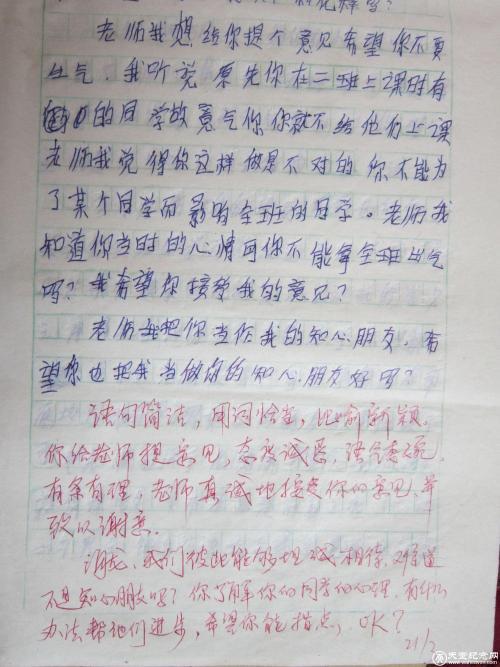 老师我想给你提个意见希望你不要
生气．我听说原先你在二班上课时有
的同学故意气你你就不给他们上课
老师我觉得你这样做是不对的你不能为
了某个同学而影响全班的同学。老师我
知道你当时的心情可你不能拿全班出气
吗？我希望你接受我的意见？
老师我把你当作我的知心朋友．希
望你也把我当做你的知心朋友好吗？
语句简洁，用词恰当，比喻新颖．
你给老师提意见，态度诚恳，语气委婉，
有条有理，老师真诚地接受你的意见，并
致以谢意．
我们彼此能够坦诚相待，难道
不是知心朋友吗？你了解你的同学们心理，有什么
办法帮他们进步，希望你能指点，OK？
21/2
天堂纪念网